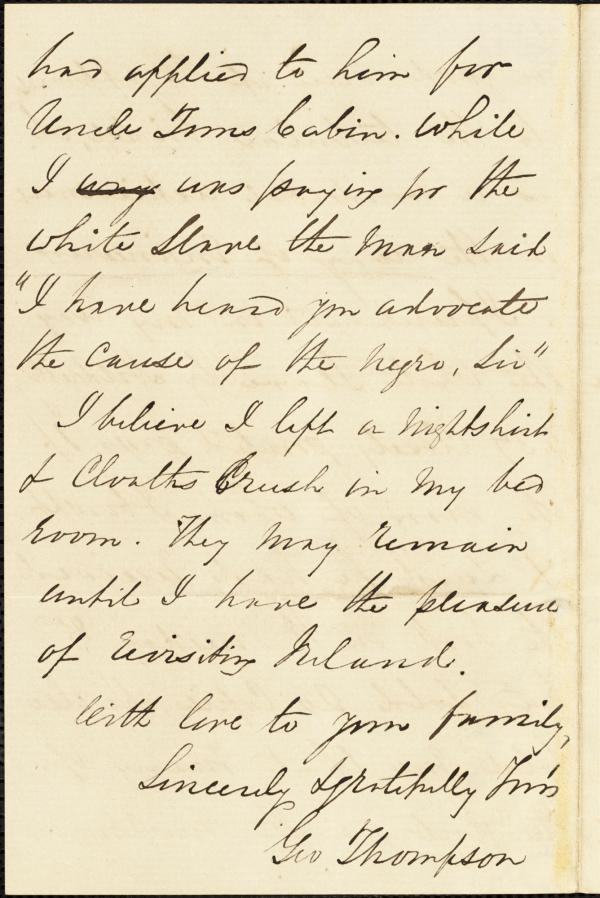 had applied to him for
Uncle Toms Cabin. While
I was paying for the
White Slave the man said
"I have heard you advocate
the cause of the negro, Sir"
I believe I left a Nightshirt
& Cloaths Brush in my bed
room. They may remain
until I have the pleasure
of revisiting Ireland.
With love to your family,
Sincerely & gratefully Yours
Geo Thompson